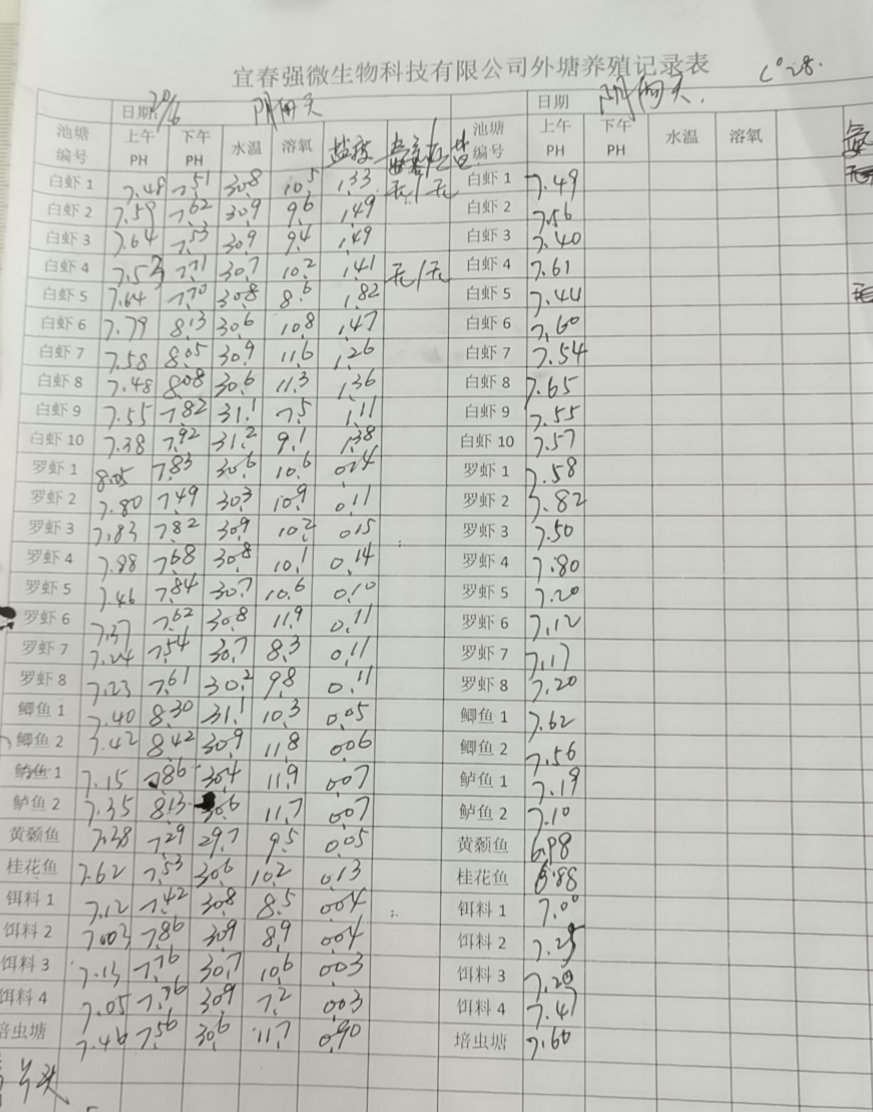 宜春强微生物科技有限公司外塘养殖记录表
日期: 20/6 阴雨天 日期 阴雨天.
池塘编号 上午PH 下午PH 水温 溶氧 盐度 池塘编号 上午PH 下午PH 水温 溶氧
白虾 1 7.48 7.51 30.8 10.5 1.33 无/无 白虾 1 7.49
白虾 2 7.59 7.62 30.9 9.6 1.49 白虾 2 7.56
白虾 3 7.64 7.53 30.9 9.4 1.49 白虾 3 7.40
白虾 4 7.53 7.71 30.7 10.2 1.41 无/无 白虾 4 7.61
白虾 5 7.64 7.70 30.8 8.6 1.82 白虾 5 7.44
白虾 6 7.79 8.13 30.6 10.8 1.47 白虾 6 7.60
白虾 7 7.58 8.05 30.9 11.6 1.26 白虾 7 7.54
白虾 8 7.48 8.08 30.6 11.3 1.36 白虾 8 7.65
白虾 9 7.55 7.82 31.1 7.5 1.11 白虾 9 7.55
白虾 10 7.38 7.92 31.2 9.1 1.38 白虾 10 7.57
罗虾 1 8.05 7.83 30.6 10.6 0.14 罗虾 1 7.58
罗虾 2 7.80 7.49 30.3 10.9 0.11 罗虾 2 7.82
罗虾 3 7.83 7.82 30.9 10.2 0.15 罗虾 3 7.50
罗虾 4 7.98 7.68 30.8 10.1 0.14 罗虾 4 7.80
罗虾 5 7.46 7.84 30.7 10.6 0.10 罗虾 5 7.20
罗虾 6 7.37 7.62 30.8 11.9 0.11 罗虾 6 7.12
罗虾 7 7.24 7.54 30.7 8.3 0.11 罗虾 7 7.17
罗虾 8 7.23 7.61 30.2 9.8 0.11 罗虾 8 7.20
鲫鱼 1 7.40 8.30 31.1 10.3 0.05 鲫鱼 1 7.62
鲫鱼 2 7.42 8.42 30.9 11.8 0.06 鲫鱼 2 7.56
鲈鱼 1 7.15 7.86 30.4 11.9 0.07 鲈鱼 1 7.19
鲈鱼 2 7.35 8.13 30.6 11.7 0.07 鲈鱼 2 7.10
黄颡鱼 7.38 7.29 29.7 9.5 0.05 黄颡鱼 6.98
桂花鱼 7.62 7.53 30.6 10.2 0.13 桂花鱼 6.88
饵料 1 7.12 7.42 30.8 8.5 0.04 饵料 1 7.00
饵料 2 7.003 7.86 30.9 8.9 0.04 饵料 2 7.25
饵料 3 7.13 7.76 30.7 10.6 0.03 饵料 3 7.20
饵料 4 7.05 7.76 30.9 7.2 0.03 饵料 4 7.47
培虫塘 7.46 7.56 30.6 11.7 0.90 培虫塘 7.60